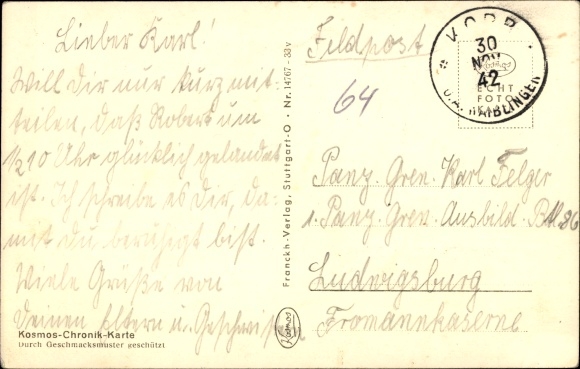 Lieber Karl!
Will Dir nur kurz mit-
teilen, daß Robert um
1/2 10 Uhr glücklich gelandet
ist. Ich schreibe es dir, da-
mit du beruhigt bist.
Viele Grüße von
Deinen Eltern u. Geschwist.
Kosmos-Chronik-Karte
Durch Geschmacksmuster geschützt
Franckh-Verlag, Stuttgart-O · Nr. 14767-33v
Kosmos
Feldpost
64
KORB
30
NOV
42
WAIBLINGEN
Kosmos
ECHT
FOTO
KARTE
Panz. Gren. Karl Felger
1. Panz. Gren. Ausbild. Btl. 26
Ludwigsburg
Fromannkaserne